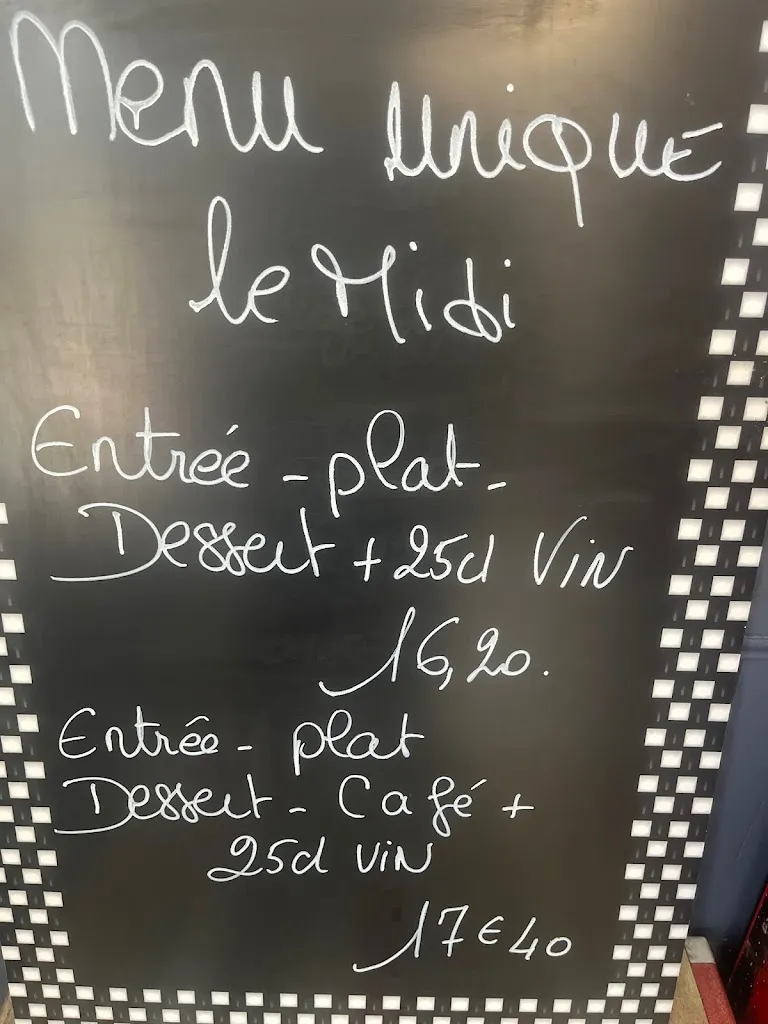 Menu unique
le Midi
Entrée - plat -
Dessert + 25cl Vin
16,20.
Entrée - plat
Dessert - Café +
25cl vin
17€40